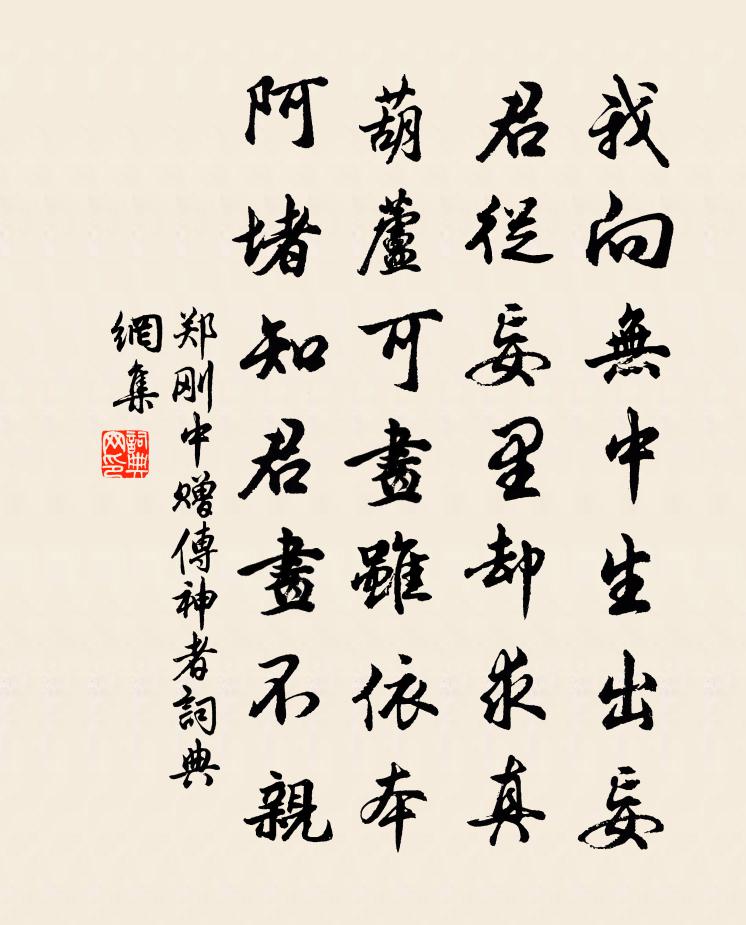 我向無中生出妄
君從妄里却求真
葫蘆可畫雖依本
阿堵知君畫不親
郑刚中赠傳神者詞典
網集
詞典
网印